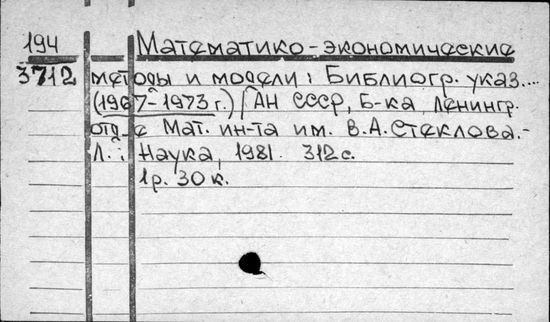 194 Математико-экономические
3712 методы и модели: Библиогр. указ....
(1967-1973 г.) / АН СССР, Б-ка Ленингр.
отд-е Мат. ин-та им. В.А.Стеклова.-
Л.: Наука, 1981. 312 с.
1р. 30 к.